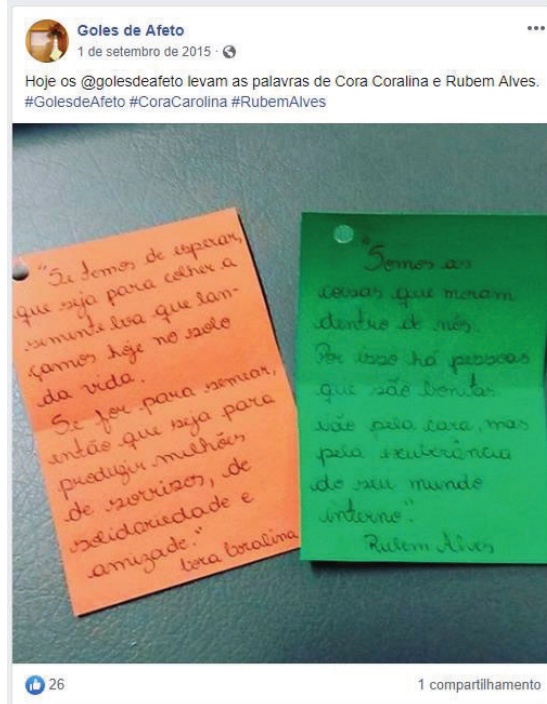 Goles de Afeto
1 de setembro de 2015 ·
Hoje os @golesdeafeto levam as palavras de Cora Coralina e Rubem Alves.
#GolesdeAfeto #CoraCarolina #RubemAlves
"Se temos de esperar,
que seja para colher a
semente boa que lan-
çamos hoje no solo
da vida.
Se for para semear,
então que seja para
produzir milhões
de sorrisos, de
solidariedade e
amizade."
Cora Coralina
"Somos as
coisas que moram
dentro de nós.
Por isso há pessoas
que são bonitas
não pela cara, mas
pela exuberância
do seu mundo
interno."
Rubem Alves
26
1 compartilhamento